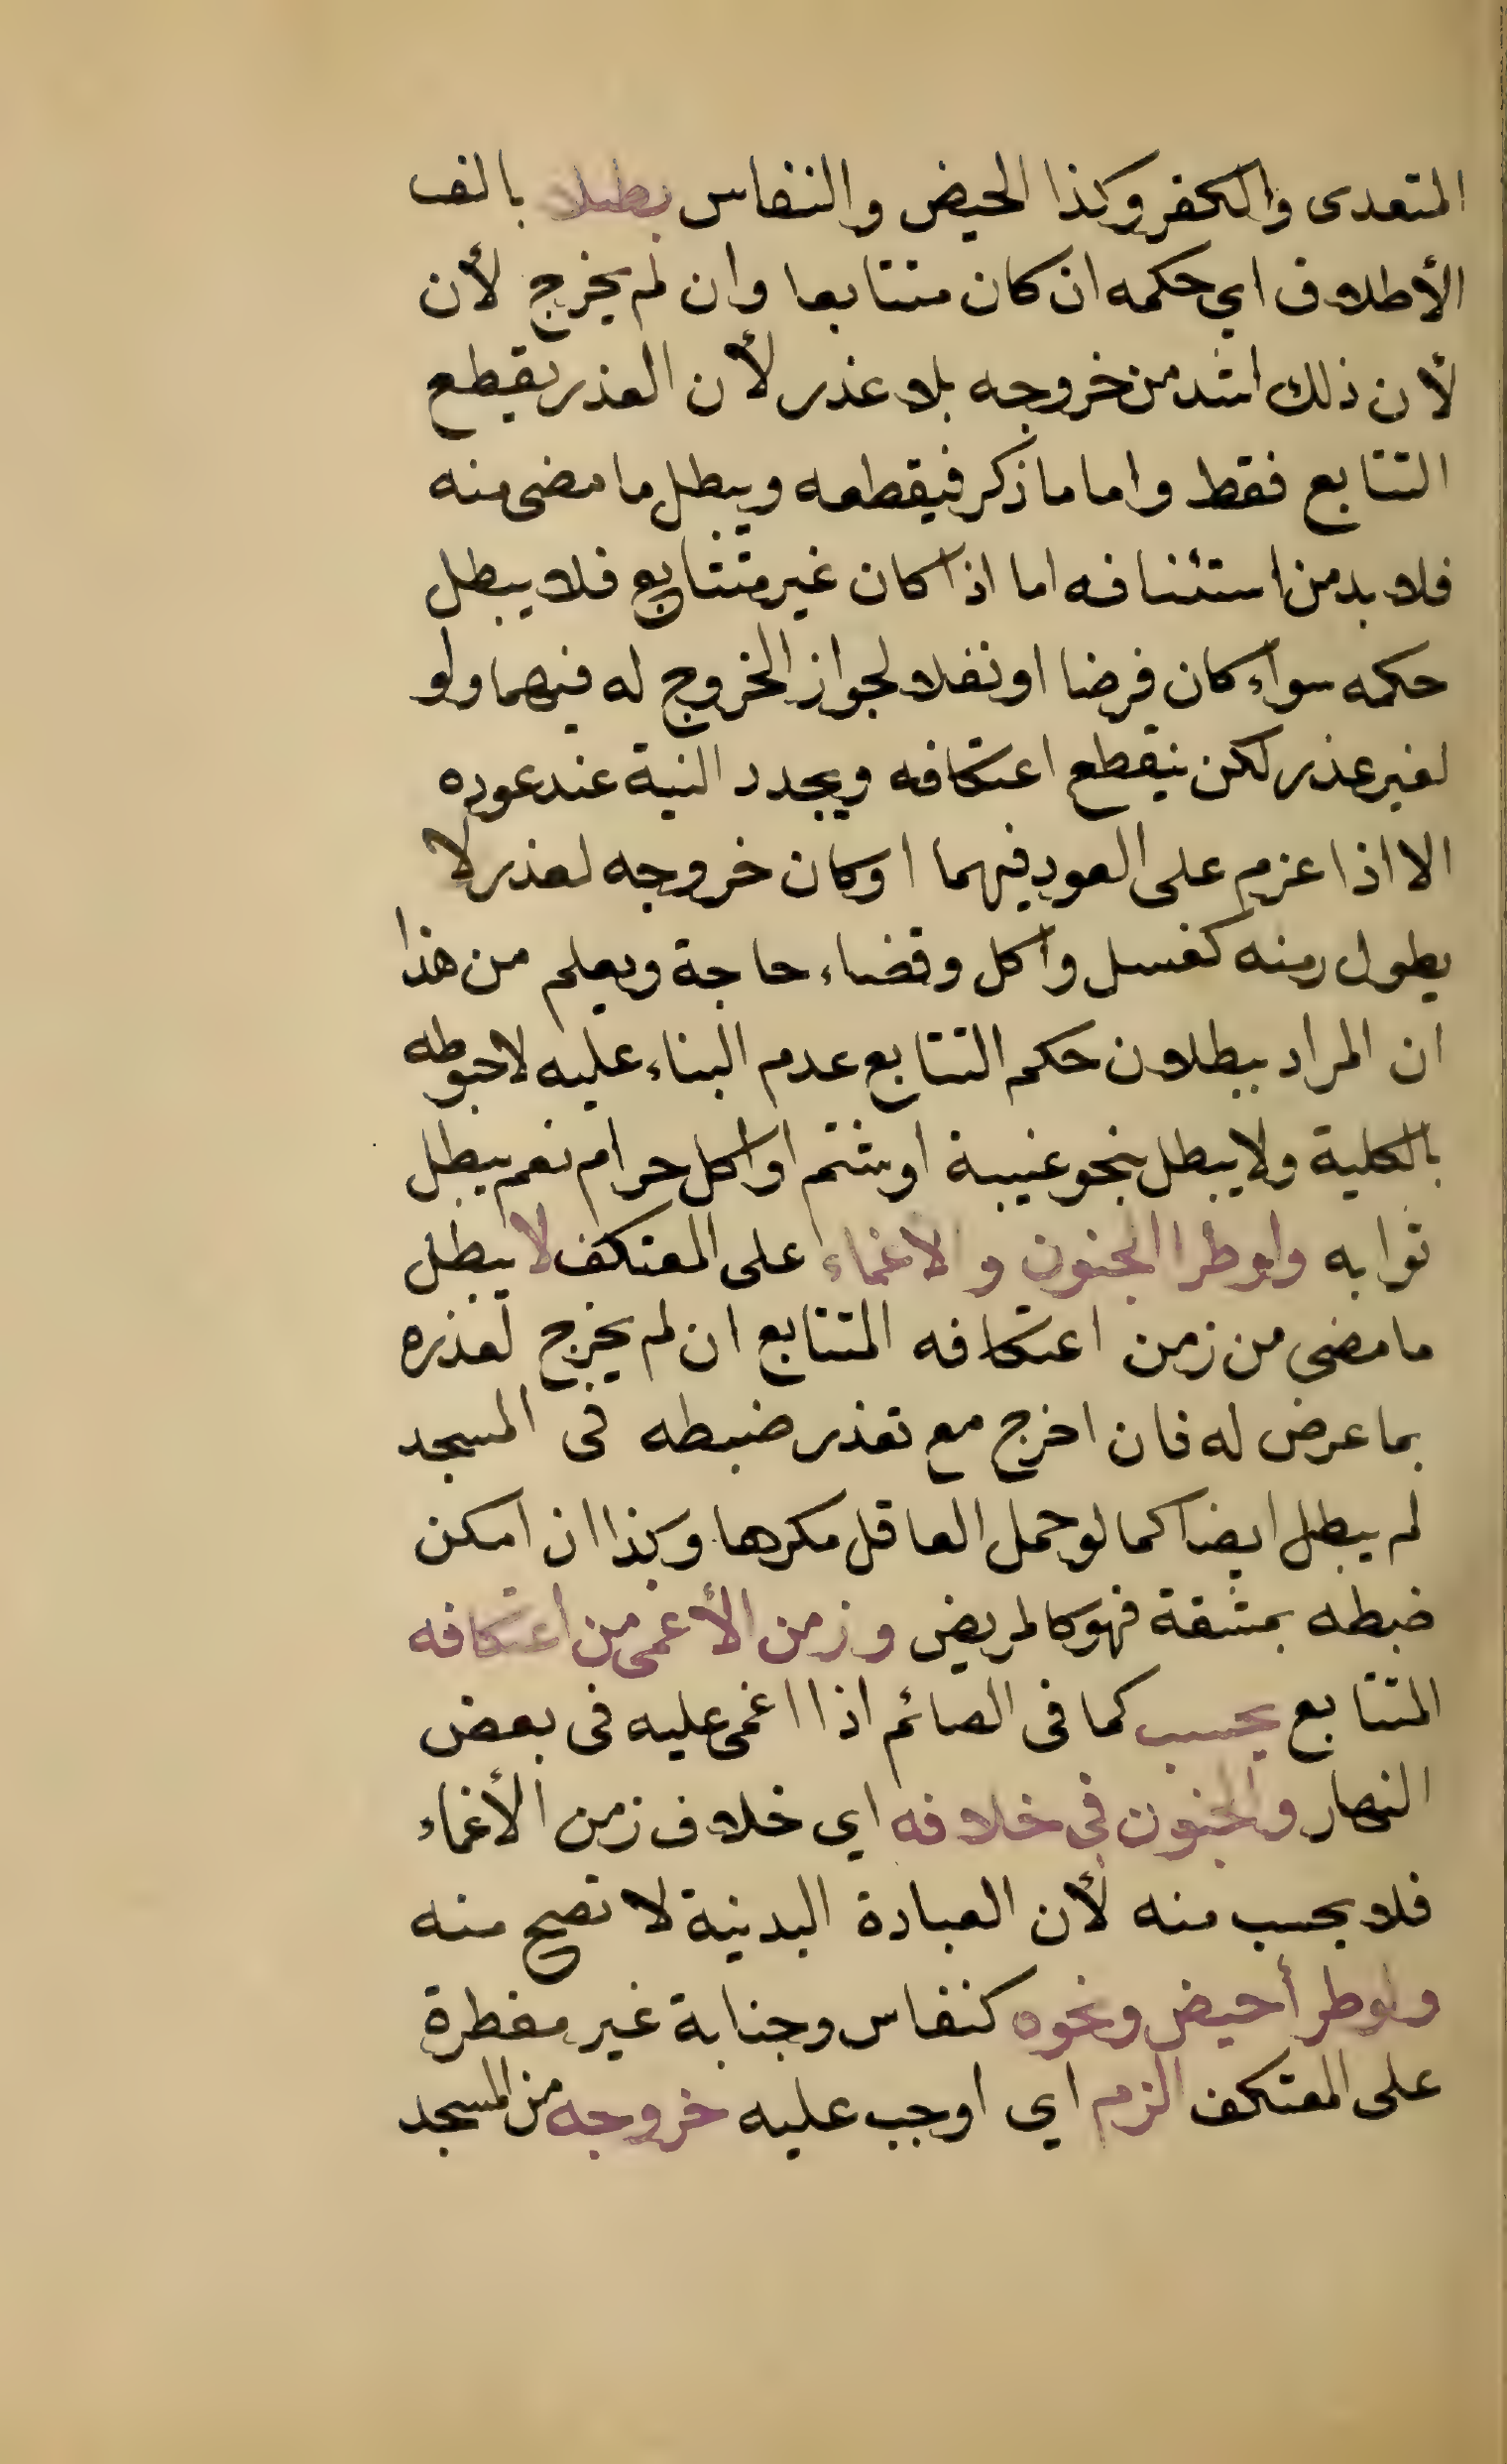 المتعدى والكفر وكذا الحيض والنفاس بطلا بالف
الأطلاق اي حكمه ان كان متتابعا وان لم يخرج لأن
لأن ذلك اشد من خروجه بلا عذر لأن العذر يقطع
التتابع فقط واما ما ذكر فيقطعه ويبطل ما مضى منه
فلا بد من استئنافه اما اذا كان غير متتابع فلا يبطل
حكمه سواء كان فرضا او نفلا لجواز الخروج له فيهما ولو
لغير عذر لكن ينقطع اعتكافه ويجدد النية عند عوده
الا اذا عزم على العود فيهما او كان خروجه لعذر لا
يطول زمنه كغسل واكل وقضاء حاجة ويعلم من هذا
ان المراد ببطلان حكم التتابع عدم البناء عليه لا حبوطه
بالكلية ولا يبطل بنحو غيبة او شتم او اكل حرام نعم يبطل
ثوابه ولو طرا الجنون والاغماء على المعتكف لا يبطل
ما مضى من زمن اعتكافه المتتابع ان لم يخرج لعذره
بما عرض له فان اخرج مع تعذر ضبطه فى المسجد
لم يبطل ايضا كما لو حمل العاقل مكرها وكذا ان امكن
ضبطه بمشقة فهو كالمريض وزمن الأغمى من اعتكافه
المتتابع يحسب كما فى الصائم اذا اغمى عليه فى بعض
النهار والجنون فى خلافه اى خلاف زمن الأغماء
فلا يحسب منه لأن العبادة البدنية لا تصح منه
ولو طرأ حيض ونحوه كنفاس وجنابة غير مفطرة
على المعتكف الزم اي اوجب عليه خروجه من المسجد